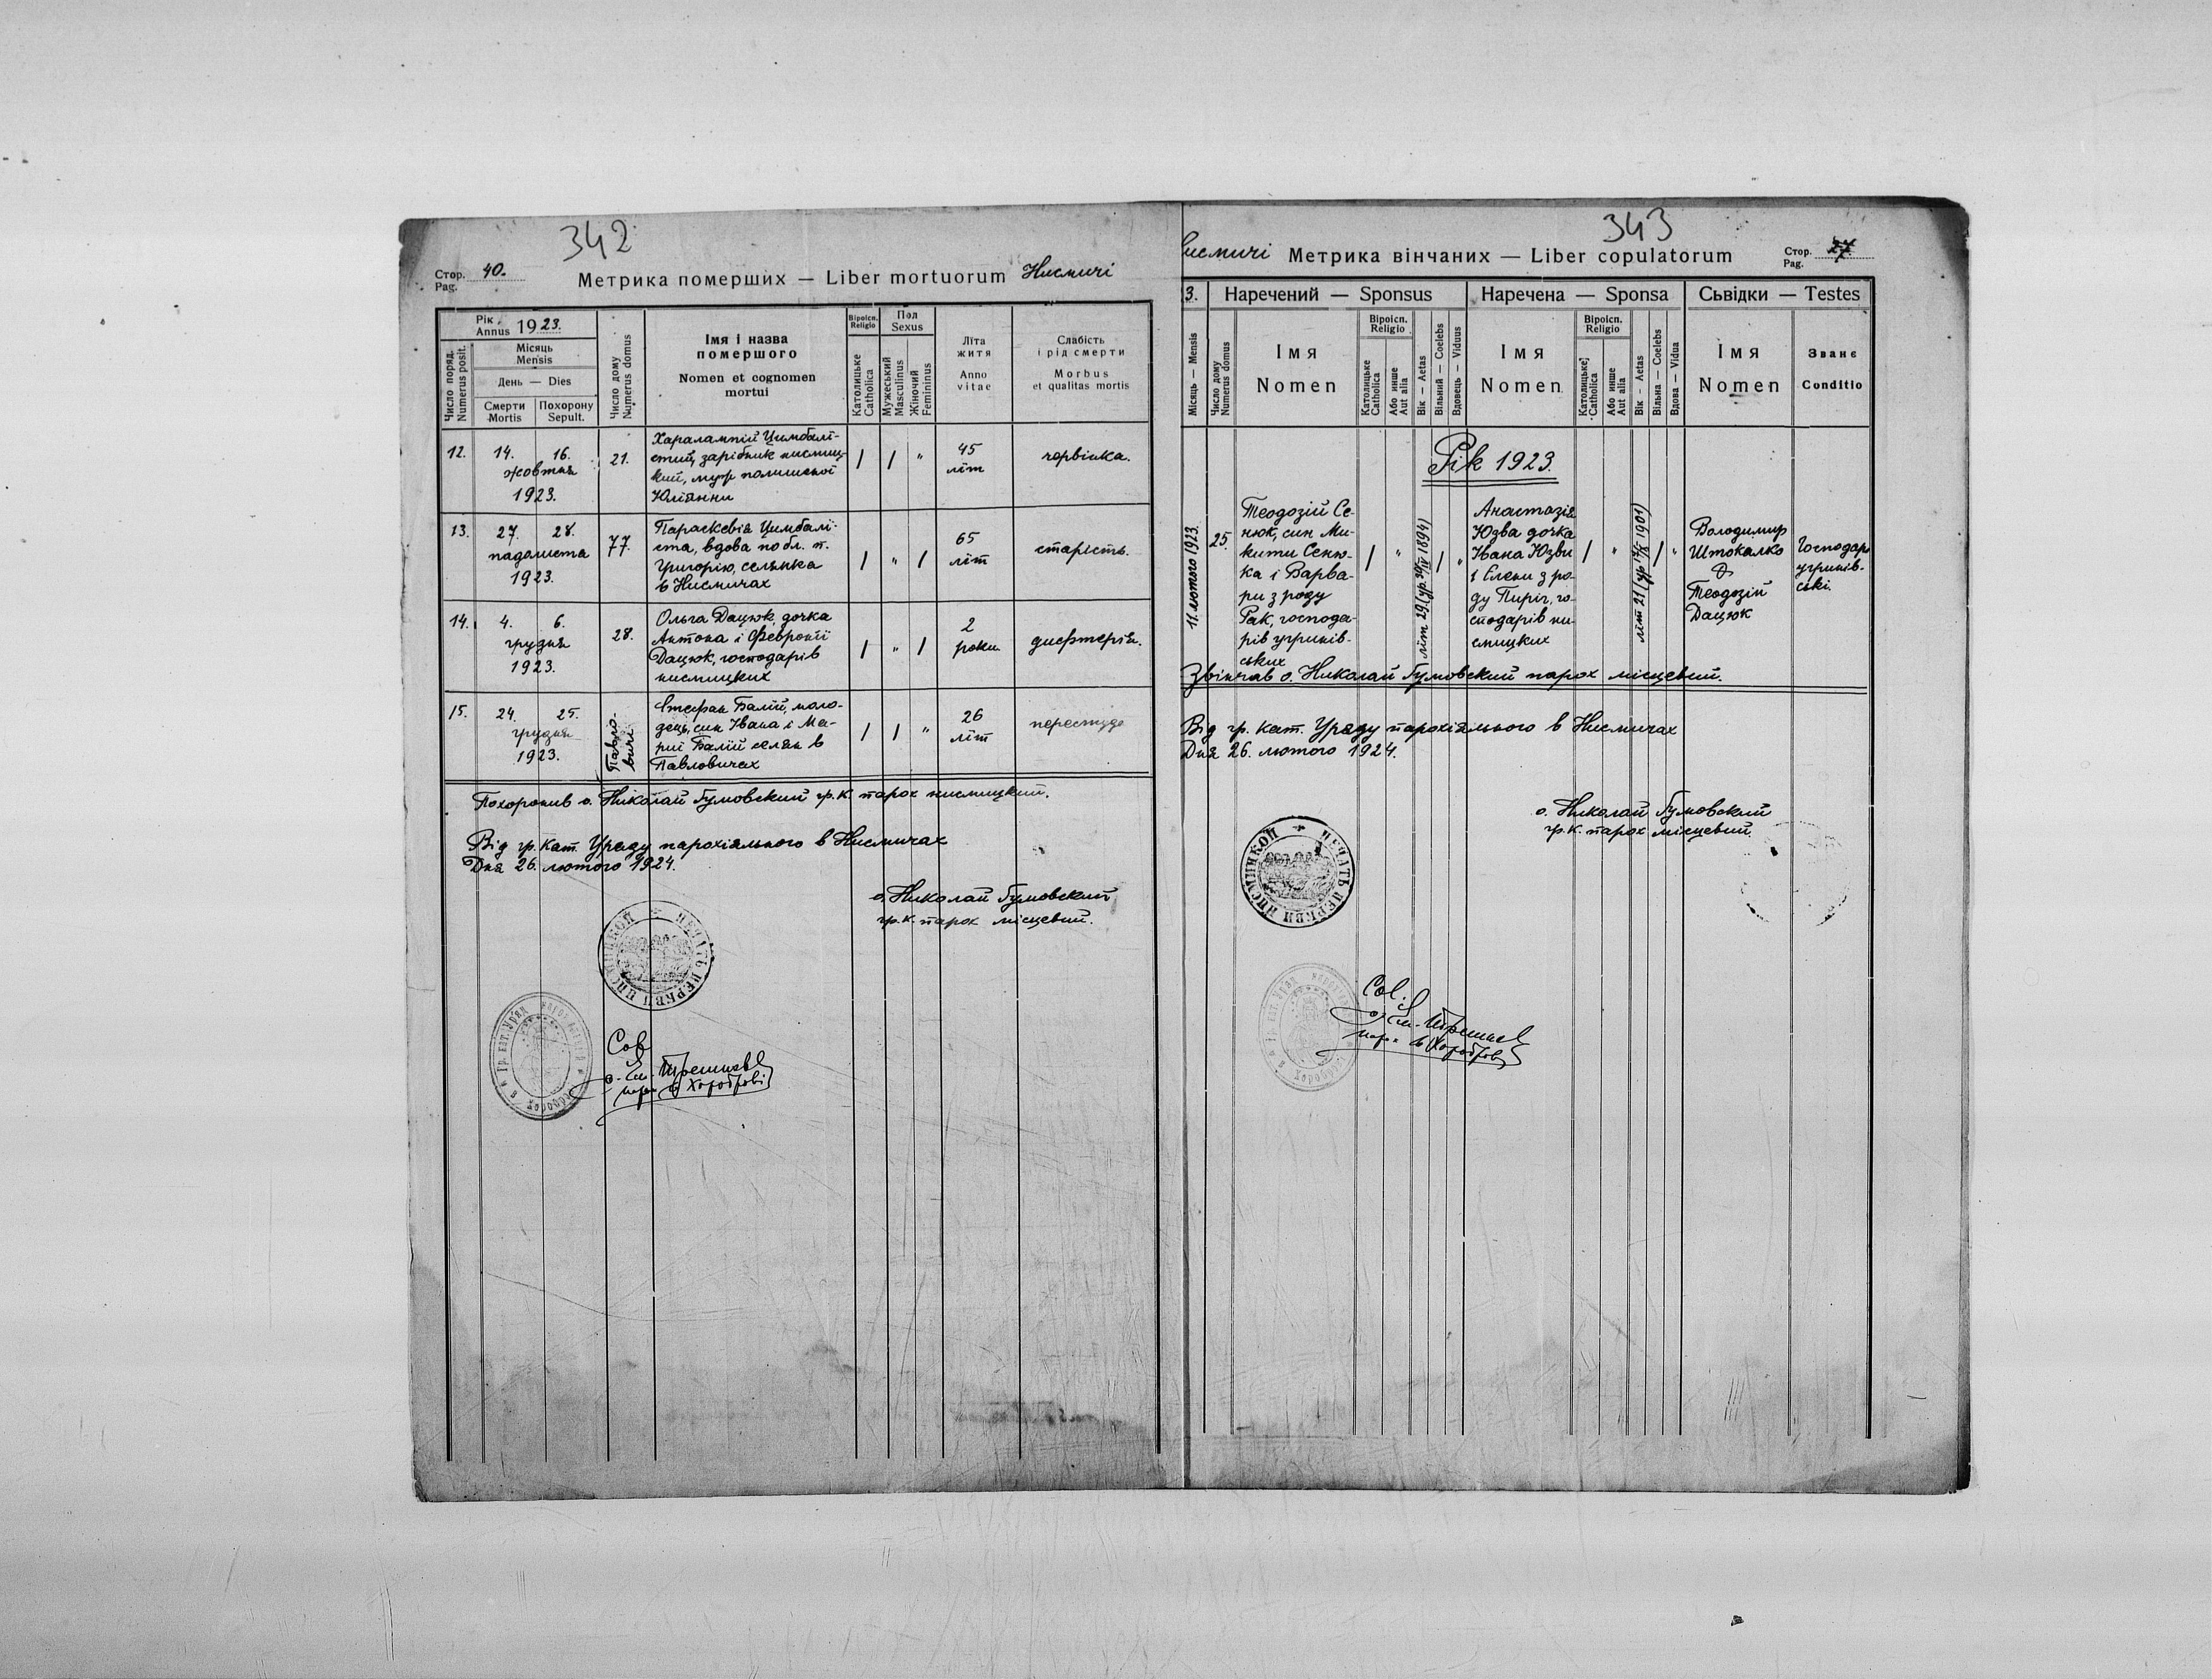 342
Стор. 40.
Pag.
Метрика померших — Liber mortuorum Нисмичі
Рік
Annus 1923.
Число поряд.
Numerus posit.
Місяць
Mensis
День — Dies
Смерти
Mortis
Похорону
Sepult.
Число дому
Numerus domus
Імя і назва
помершого
Nomen et cognomen
mortui
Віроісп.
Religio
Католицьке
Catholica
Пол
Sexus
Мужеський
Masculinus
Жіночий
Femininus
Літа
життя
Anno
vitae
Слабість
і рід смерти
Morbus
et qualitas mortis
12. 14. 16. жовтня 1923. 21.
Харалампій Цимбалі-
стий, зарібник нисмиц-
кий, муж полишеної
Юліянни
/ / " 45 літ червінка.
13. 27. 28. падолиста 1923. 77.
Параскевія Цимбалі-
ста, вдова по бл. п.
Григорію, селянка
в Нисмичах
/ " / 65 літ старість.
14. 4. 6. грудня 1923. 28.
Ольга Дацюк, дочка
Антона і Февронії
Дацюк, господарів
нисмицких
/ " / 2 роки дифтерія.
15. 24. 25. грудня 1923. Павло-
вичі
Стефан Балій, моло-
дець, син Івана і Ма-
рії Балій селян в
Павловичах
/ / " 26 літ перестуда
Похоронив о. Николай Гумовский гр. к. парох нисмицкий.
Від гр. кат. Уряду парохіяльного в Нисмичах
Дня 26. лютого 1924.
о. Николай Гумовский
гр. к. парох місцевий.
ПЕЧАТЬ ЦЕРКВИ НИСМИЦКОЙ
Сов
343
Нисмичі Метрика вінчаних — Liber copulatorum
Стор. 27.
Pag.
3.
Наречений — Sponsus
Наречена — Sponsa
Сьвідки — Testes
Місяць — Mensis
Число дому
Numerus domus
Імя
Nomen
Віроісп.
Religio
Католицьке
Catholica
Або инше
Aut alia
Вік — Aetas
Вільний — Coelebs
Вдовець — Viduus
Імя
Nomen
Віроісп.
Religio
Католицьке
Catholica
Або инше
Aut alia
Вік — Aetas
Вільна — Coelebs
Вдова — Vidua
Імя
Nomen
Званє
Conditio
Рік 1923.
11. лютого 1923.
25.
Теодозій Се-
нюк, син Ми-
кити Сеню-
ка і Варва-
ри з роду
Рак, господа-
рів угринів-
ських
/ " літ 29. (ур. 30/IV 1894) / "
Анастазія
Юзва дочка
Івана Юзви
і Єлени з ро-
ду Пиріг, го-
сподарів ни-
смицких
/ " літ 21 / "
Володимир
Штокалко
&
Теодозій
Дацюк
Господарі
угринів-
ські.
Звінчав о. Николай Гумовский парох місцевий.
Від гр. кат. Уряду парохіяльного в Нисмичах
Дня 26. лютого 1924.
о. Николай Гумовский
гр. к. парох місцевий.
ПЕЧАТЬ ЦЕРКВИ НИСМИЦКОЙ